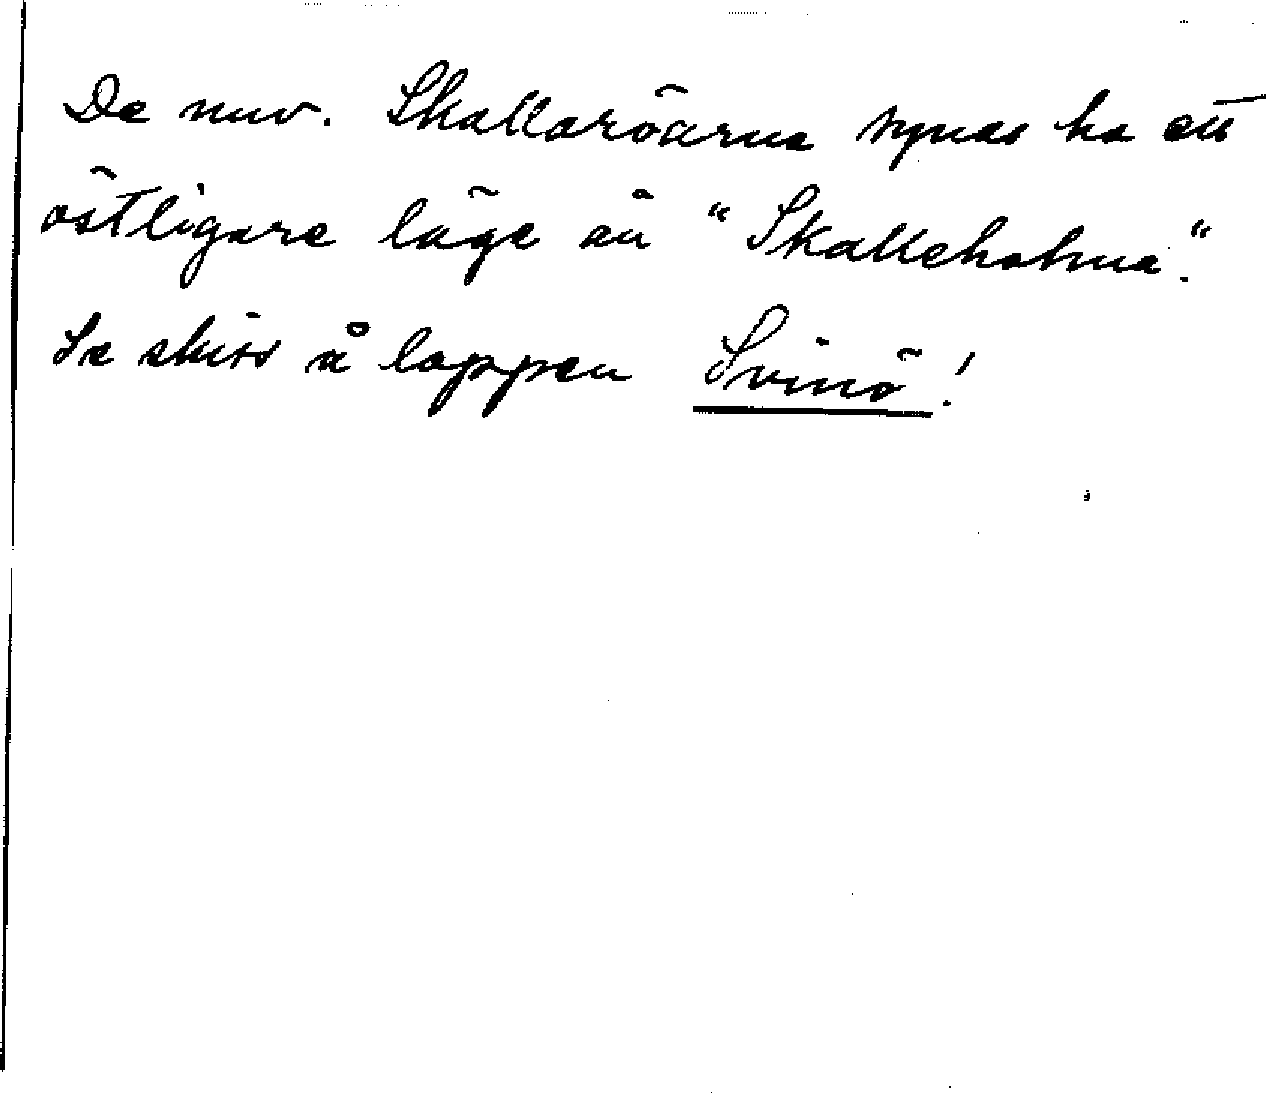 De nuv. Skallaröarna synas ha ett
östligare läge än "Skalleholma".
Se skiss å lappen Svinö!